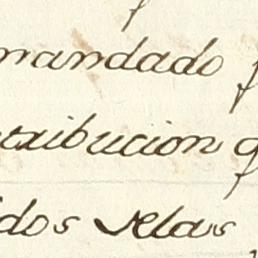 mandado
tribucion q
dos Velas